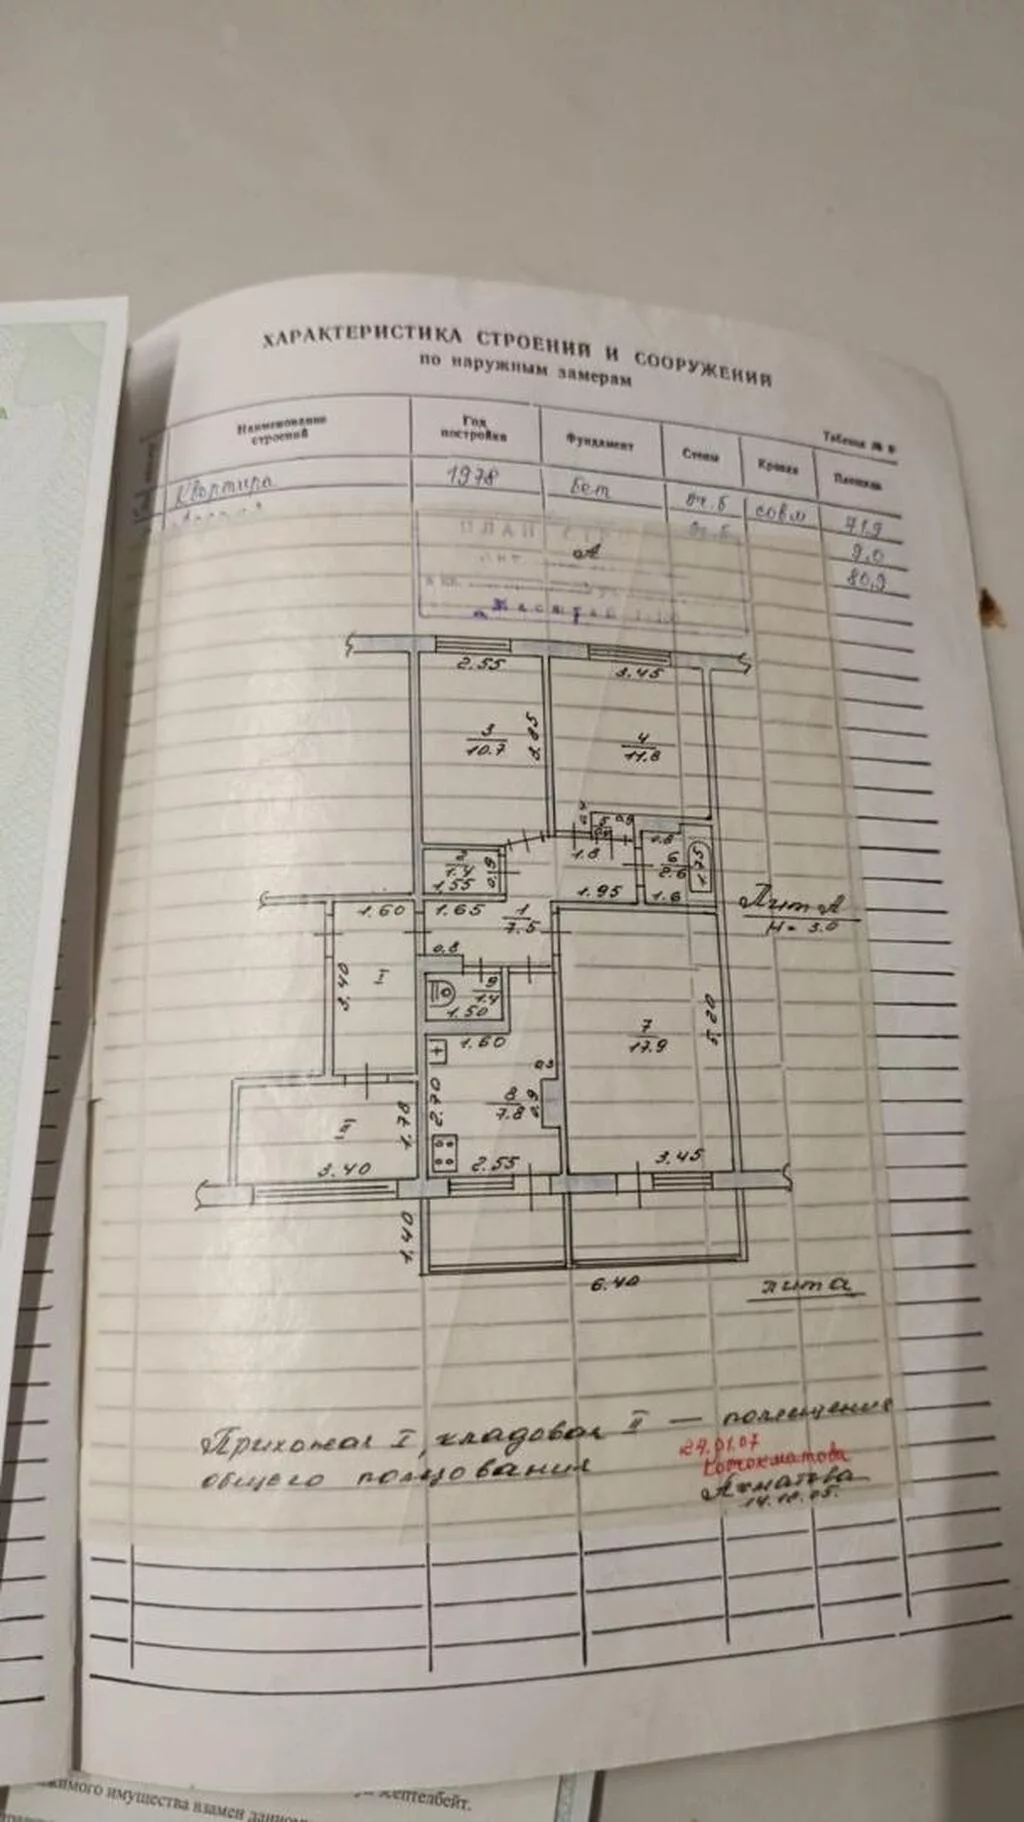 ХАРАКТЕРИСТИКА СТРОЕНИЙ И СООРУЖЕНИЙ
по наружным замерам
Таблица №
Наименование строений
Год постройки
Фундамент
Стены
Кровля
Площадь
Квартира 1978 бет совм 71,9
9,0
80,9
ПЛАН
А
2.55
3.45
3
10.7
3.85
4
11.8
5
0.9
1.8
2
1.4
1.55
6
2.6
1.75
1.95
1.6
1.60
1.65
1
7.5
0.8
Лит А
H= 3.0
3.40
I
9
1.4
1.50
1.60
7
17.9
5.20
0.3
8
7.8
0.9
2.70
1.78
II
3.40
2.55
3.45
1.40
6.40
лит а
Прихожая I, кладовая II — помещение
общего пользования
24.01.07
Ахматова
14.10.05.
имущества взамен